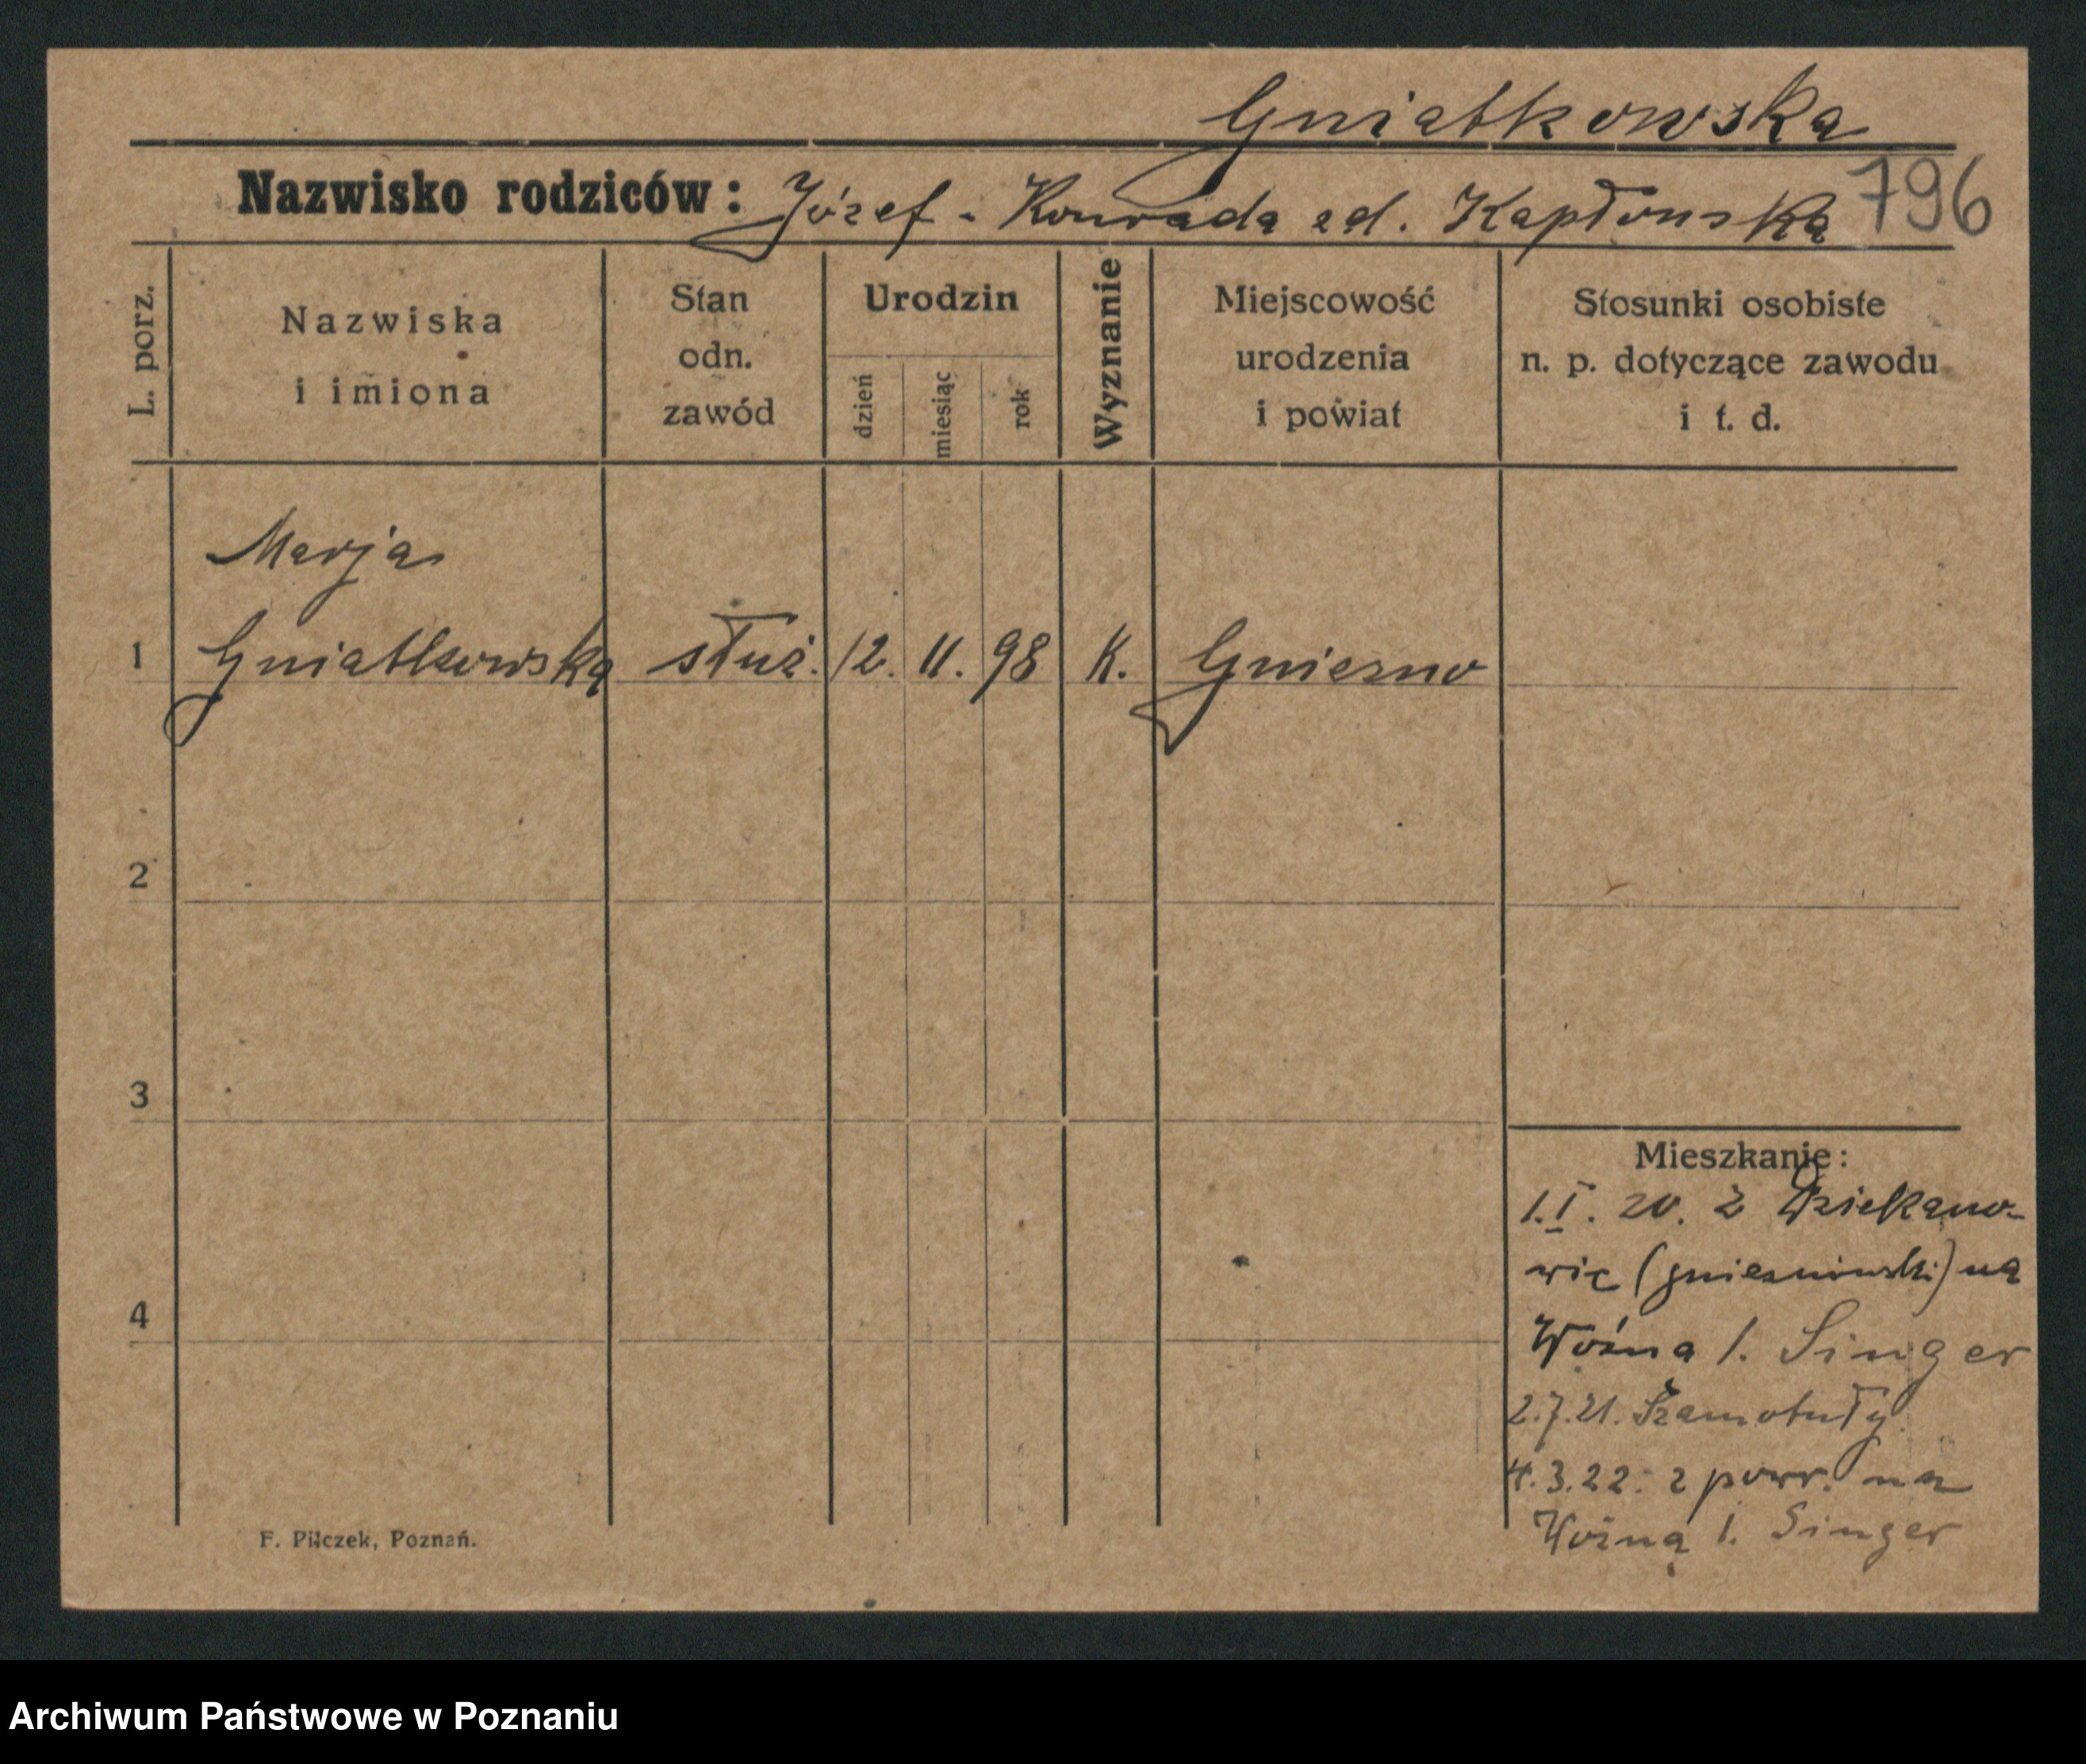 Gniatkowska
Nazwisko rodziców: Józef - Konrada zd. Kapłonska 796
L. porz.
Nazwiska
i imiona
Stan
odn.
zawód
Urodzin
dzień
miesiąc
rok
Wyznanie
Miejscowość
urodzenia
i powiat
Stosunki osobiste
n. p. dotyczące zawodu
i t. d.
Marja
1 Gniatkowska służ. 12. 11. 98 K. Gniezno
2
3
4
Mieszkanie:
1.I. 20. z Dziekano-
wic (gnieznieński) na
Woźna 1. Singer
2.7.21. Szamotuły
4.3.22. z powr. na
Woźną 1. Singer
F. Pilczek, Poznań.
Archiwum Państwowe w Poznaniu